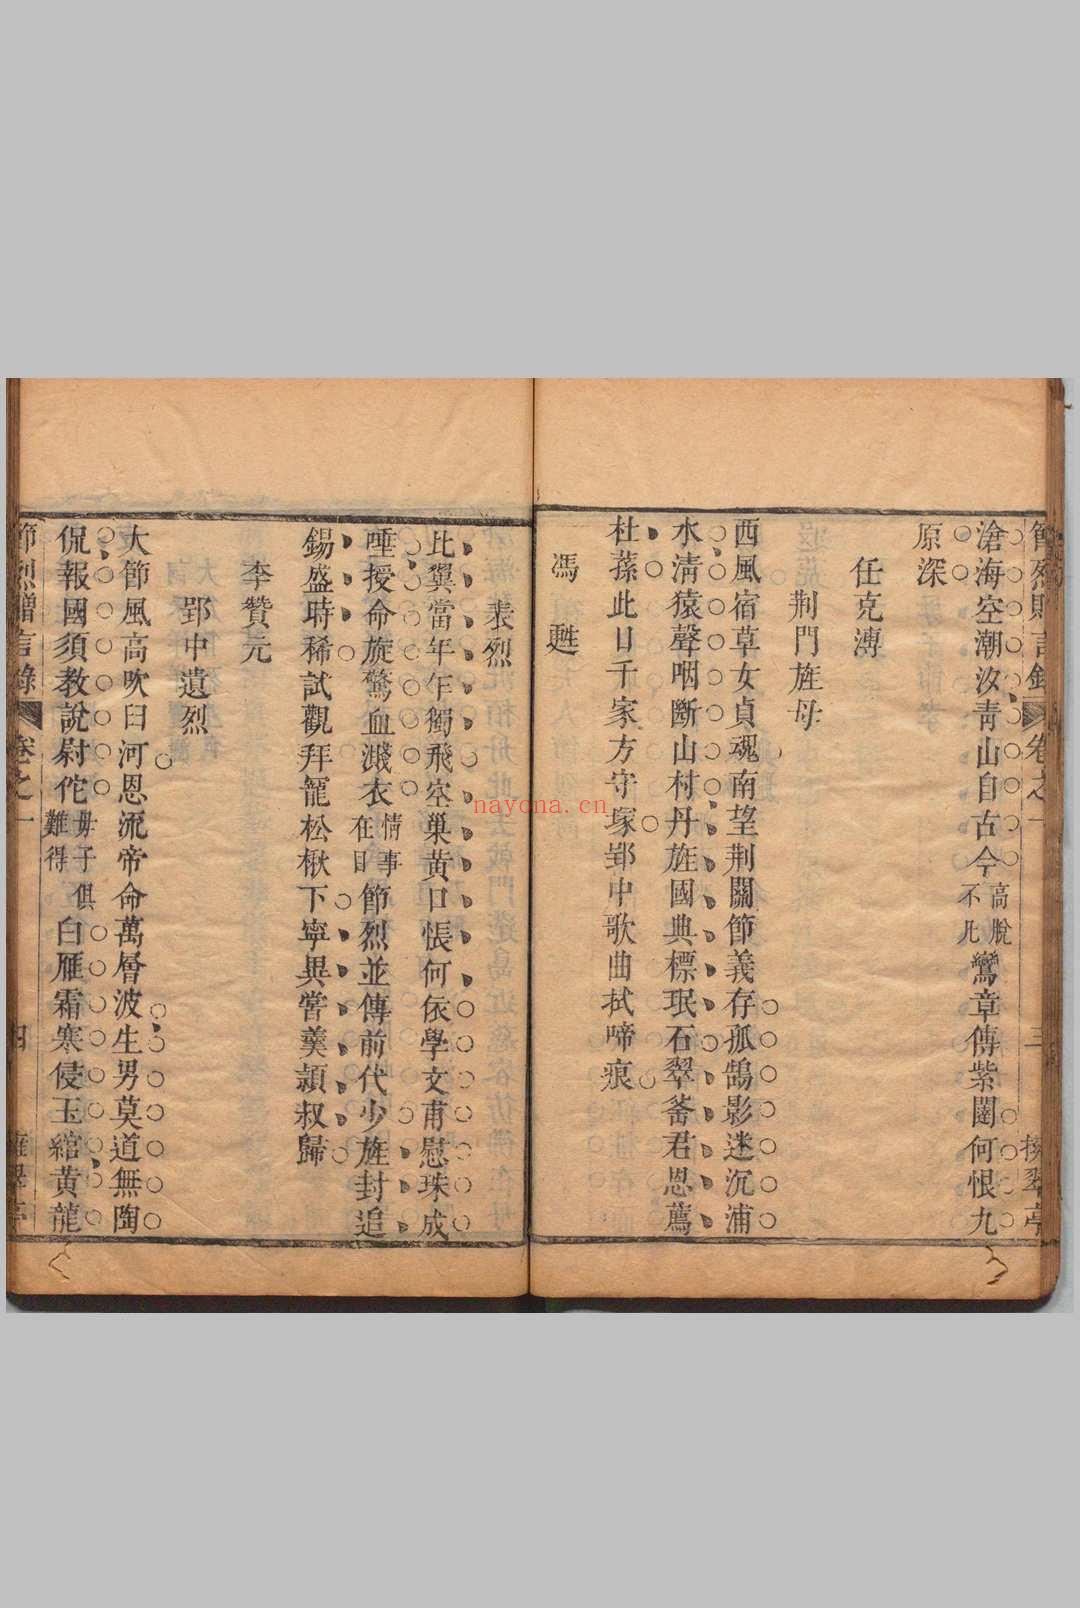 滄海空潮汝靑山自古今高脫不凡鸞章傳紫闥何恨九
原深
任克溥
荆門旌母
西風宿草女貞魂南望荆關節義存孤鵠影迷沉浦
水清猿聲咽斷山村丹旌國典標珉石翠菭君恩薦
杜蓀此日千家方守塚郢中歌曲拭啼痕
馮甦
表烈
比翼當年年獨飛空巢黄口悵何依學文甫慰珠成
唾授命旋驚血濺衣情事在目節烈並傳前代少旌封追
錫盛時稀試觀拜寵松楸下寧異嘗羹潁叔歸
李贊元
郢中遺烈
大節風高吹臼河恩流帝命萬層波生男莫道無陶
侃報國須教說尉佗母子俱難得白雁霜寒侵玉綰黄龍
節烈贈言錄 卷之一
nayona.cn